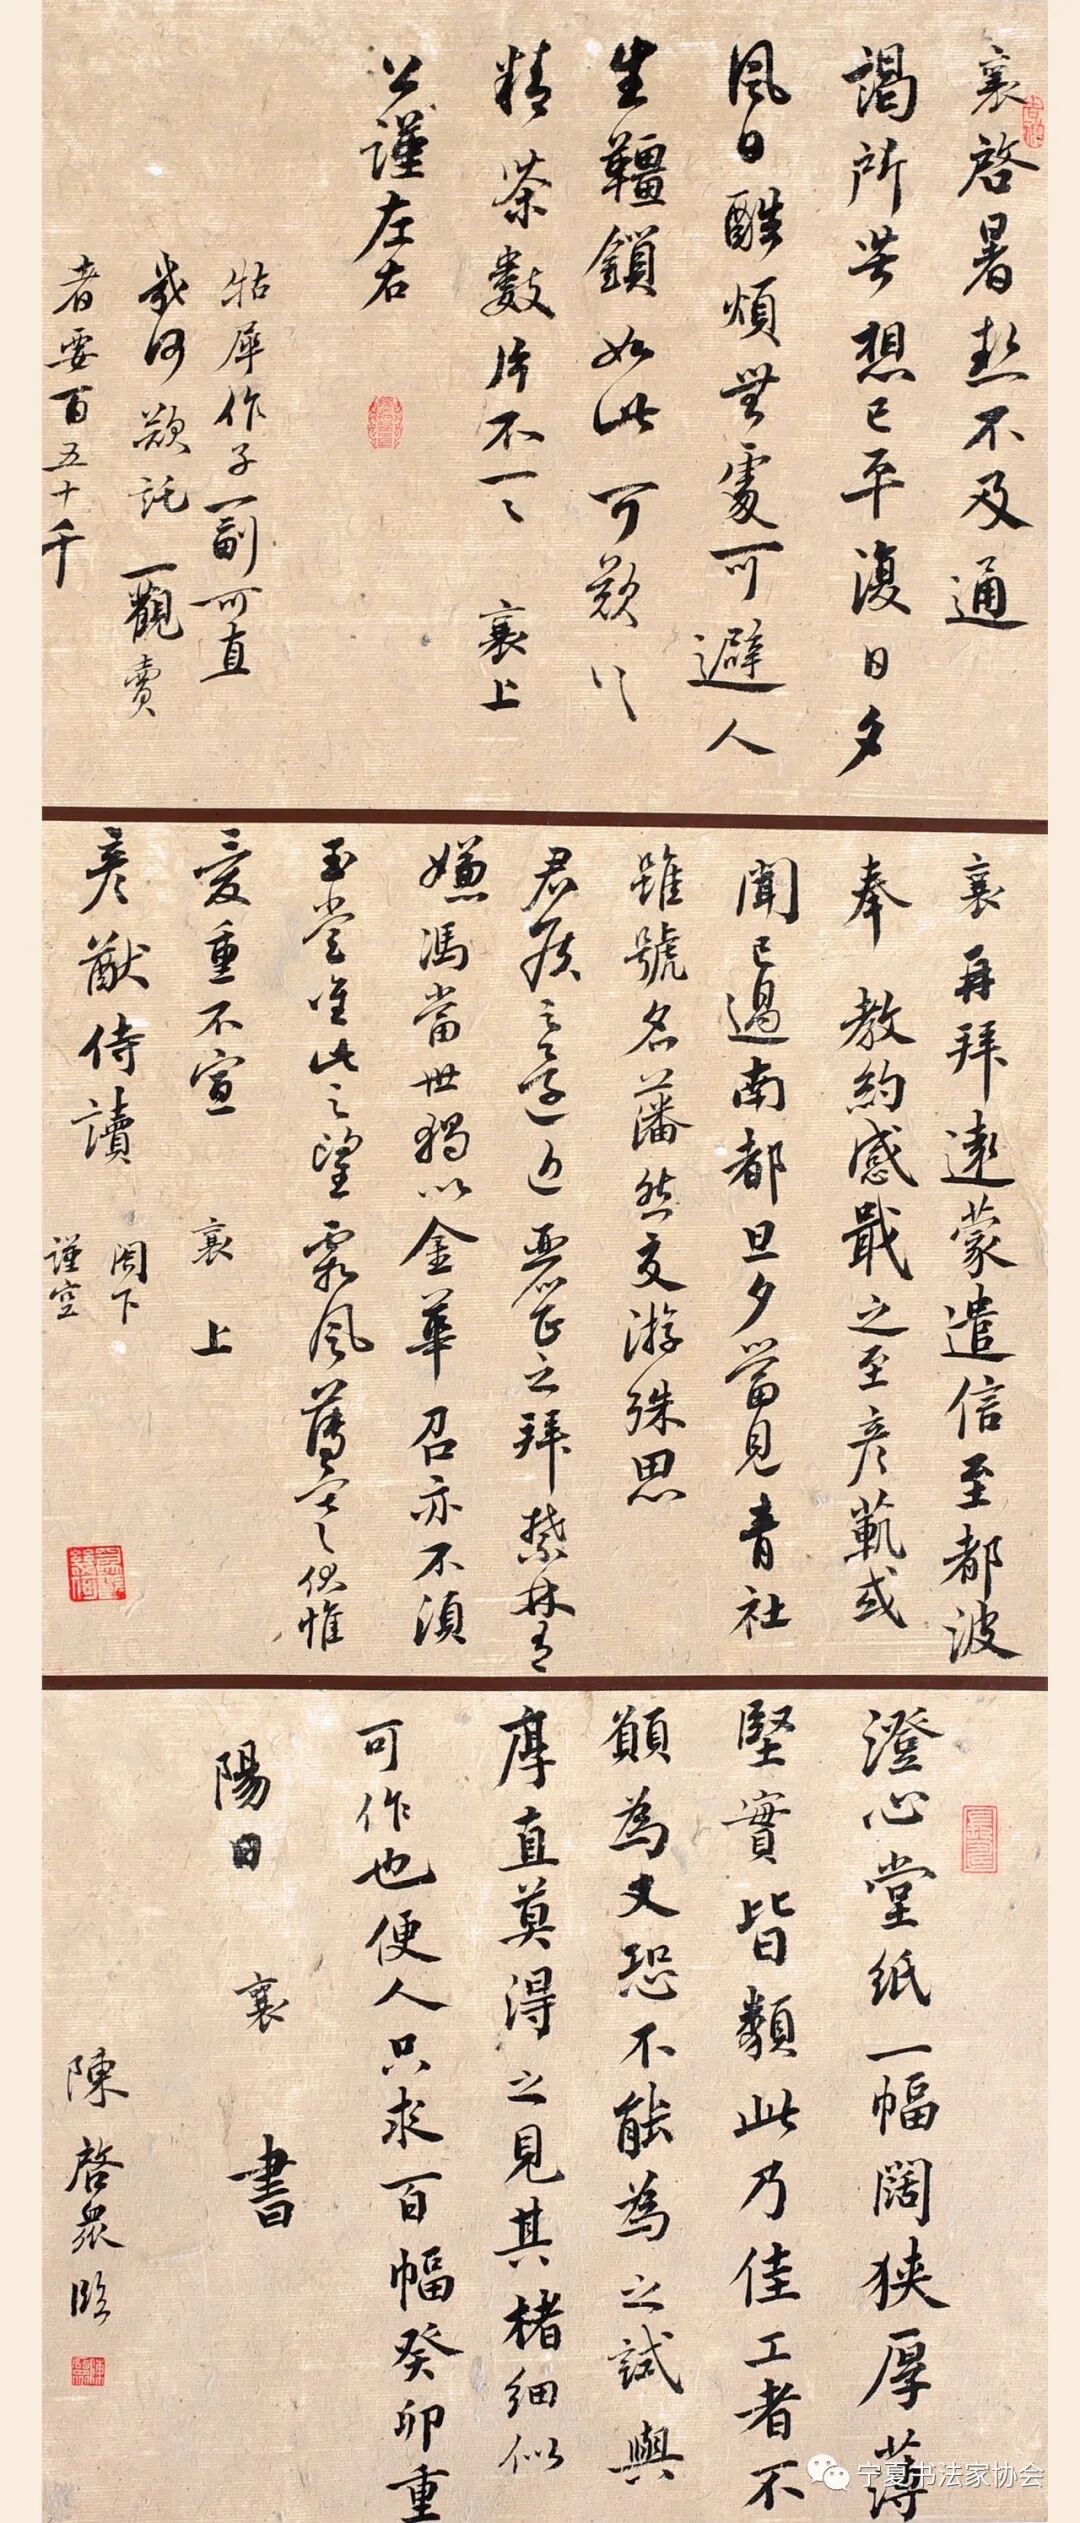 襄啓暑熱不及通
謁所苦想已平復日夕
風日酷煩無處可避人
生韁鎖如此可歎〻
精茶數片不一〻 襄上
公謹左右
牯犀作子一副可直
幾何欲託一觀賣
者要百五十千
襄再拜遠蒙遣信至都波
奉 教約感戢之至彦範或
聞已過南都旦夕當見青社
雖號名藩然交游殊思
君侯之還近麗正之拜禁林有
嫌馮當世獨以金華召亦不須
玉堂唯此之望霜風薄寒〻伏惟
愛重不宣 襄上
彦猷侍讀
閣下
謹空
澄心堂紙一幅闊狹厚薄
堅實皆類此乃佳工者不
願為又恐不能為之試與
厚直莫得之見其楮細似
可作也便人只求百幅癸卯重
陽日 襄 書
陳啓衆臨
宁夏书法家协会